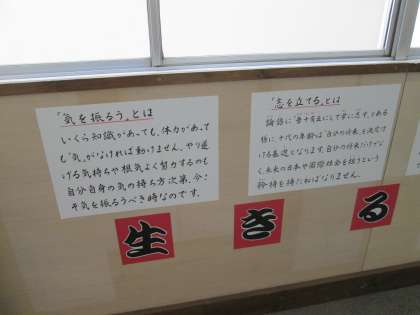 「気を振るう」とは
いくら知識があっても、体力があって
も「気」がなければ動けません。やり遂
げる気持ちや根気よく努力するのも
自分自身の気の持ち方次第。今こ
そ気を振るうべき時なのです。
「志を立てる」とは
論語に「吾十有五にして学に志す」とある
様に、十代の年齢は「自分の将来」を決定づ
ける基礎となります。自分の将来だけでな
く、未来の日本や国際社会を担うという
矜持を持たねばなりません。
生きる